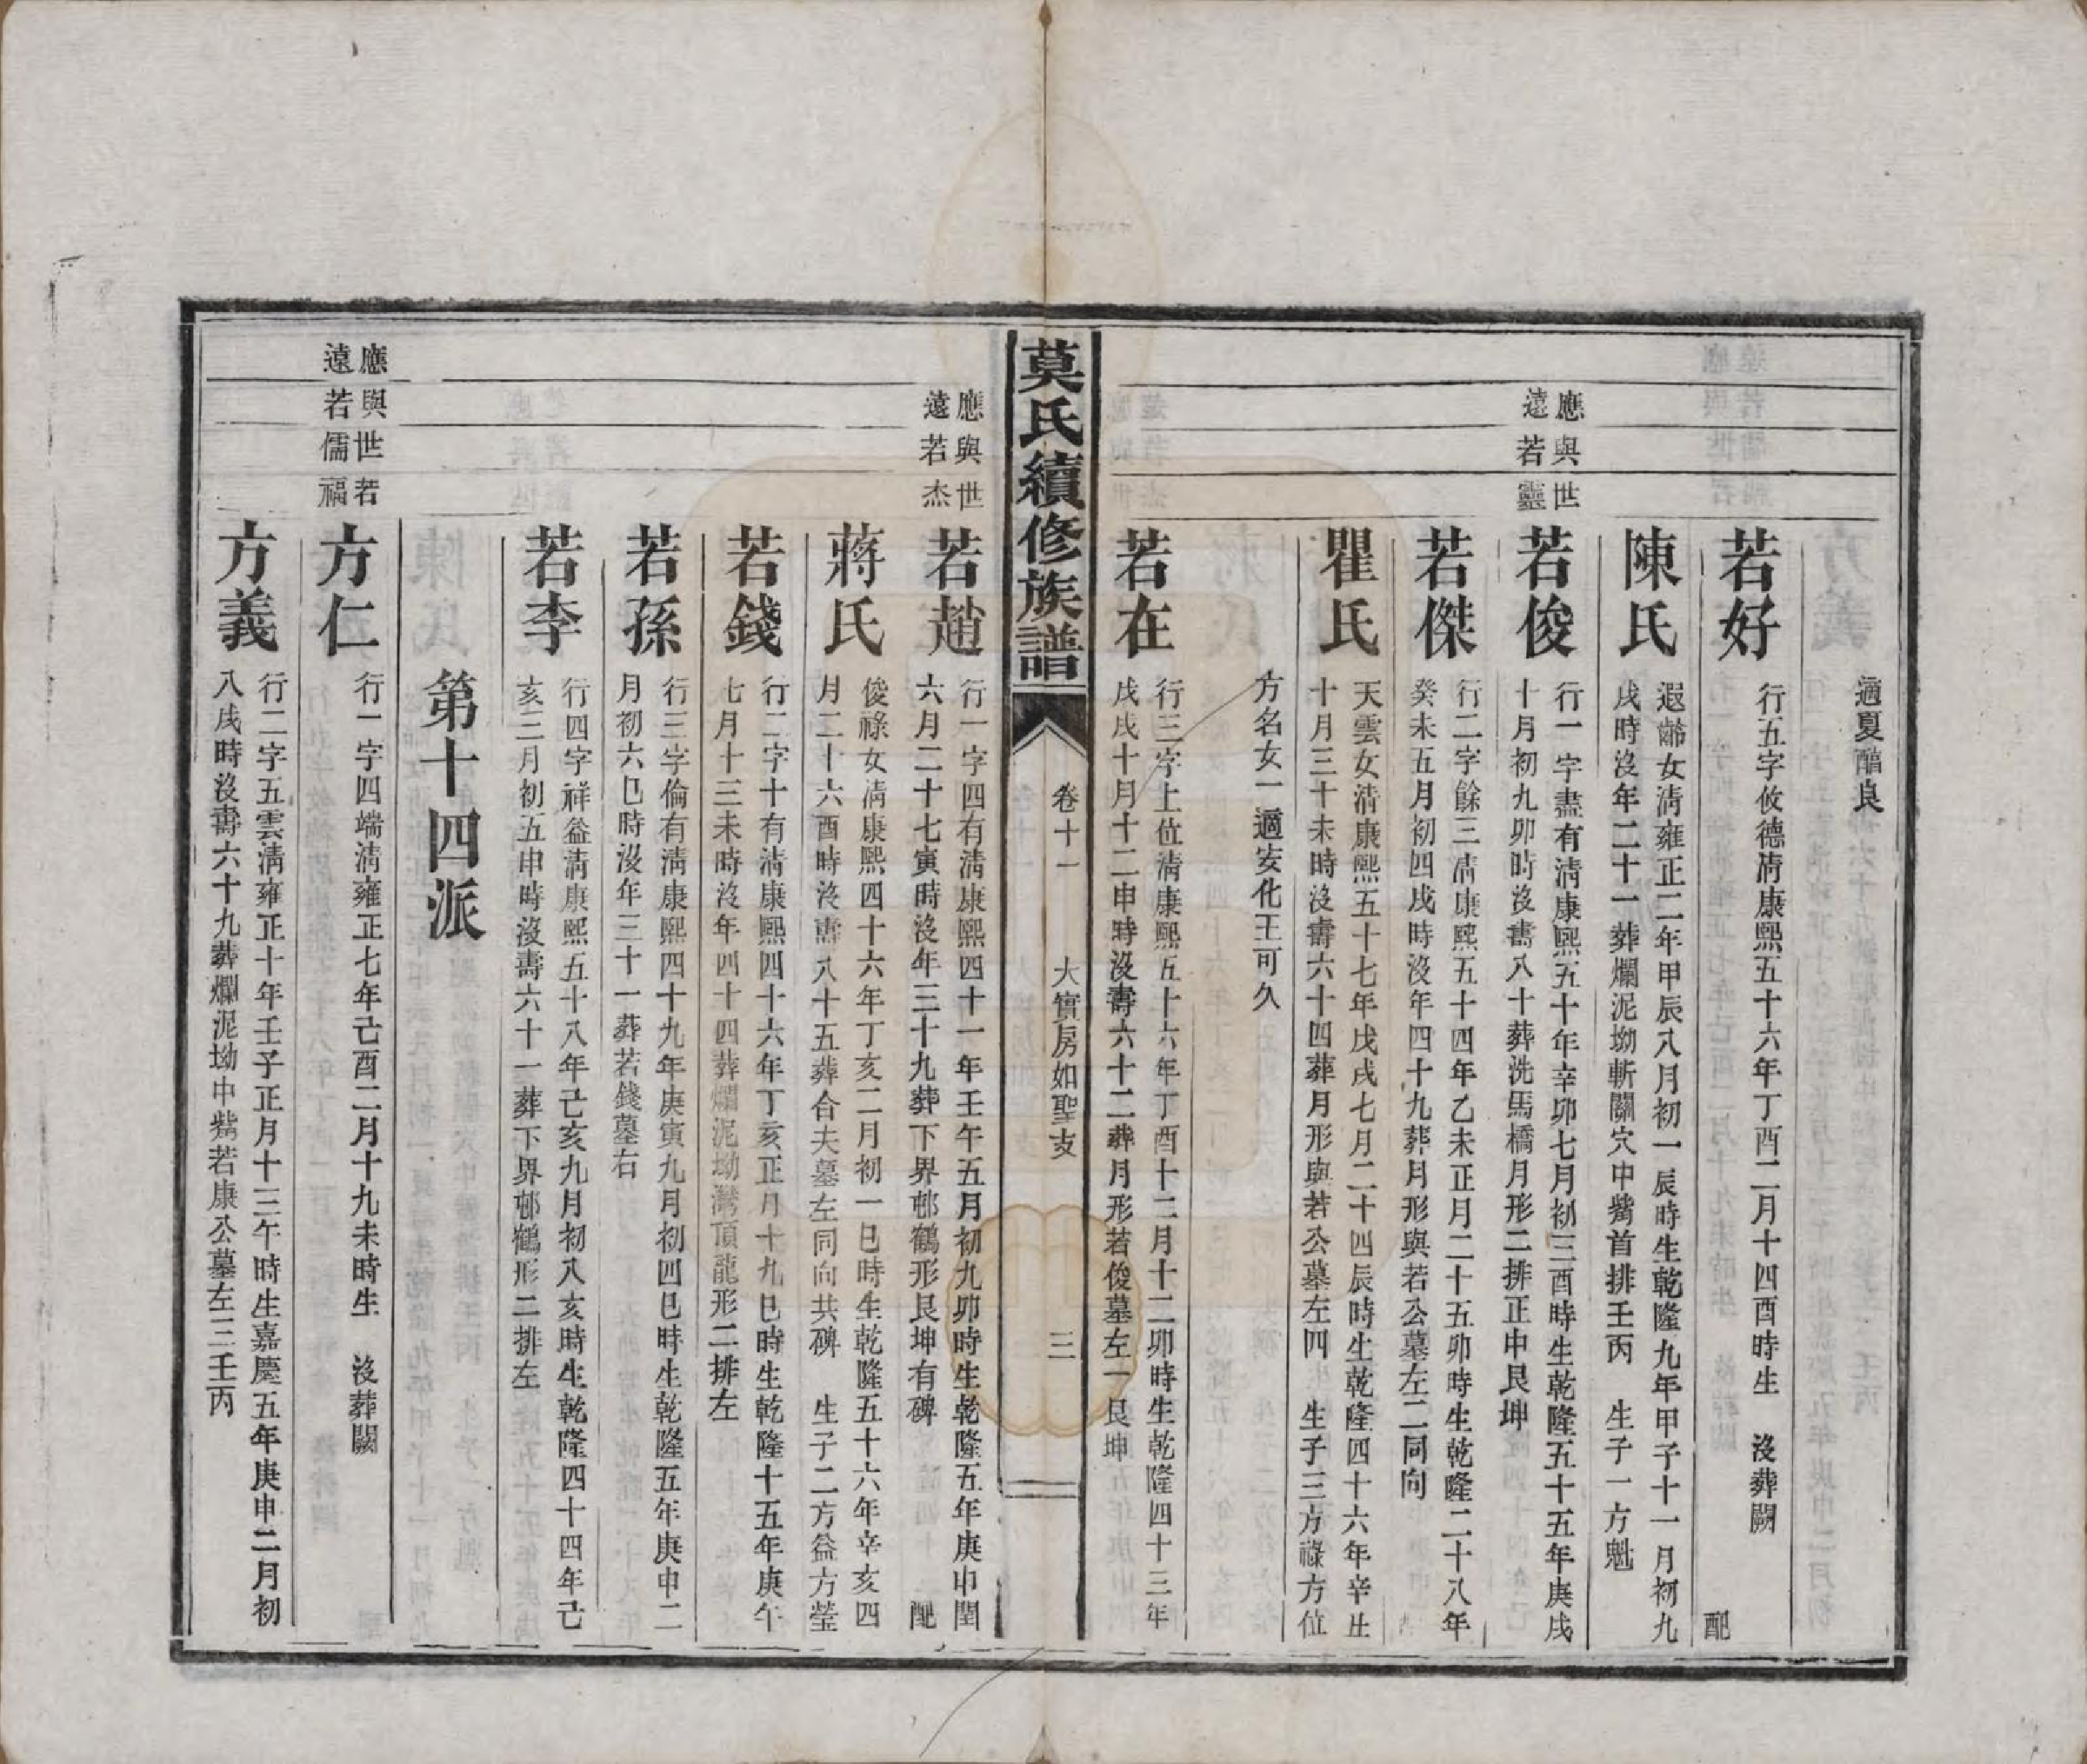 適夏醕良
若好
行五字攸德清康熙五十六年丁酉二月十四酉時生　沒葬闕
配
陳氏
遐齡女清雍正二年甲辰八月初一辰時生乾隆九年甲子十一月初九
戌時沒年二十一葬爛泥坳斬關穴中嘴首排壬丙　生子一方魁
應與世
遠若靈
若俊
行一字盡有清康熙五十年辛卯七月初三酉時生乾隆五十五年庚戌
十月初九卯時沒壽八十葬洗馬橋月形二排正申艮坤
若傑
行二字餘三清康熙五十四年乙未正月二十五卯時生乾隆二十八年
癸未五月初四戌時沒年四十九葬月形與若公墓左二同向
瞿氏
天雲女清康熙五十七年戊戌七月二十四辰時生乾隆四十六年辛丑
十月三十未時沒壽六十四葬月形與若公墓左四　生子三方祿方位
方名女一適安化王可久
若在
行三字上位清康熙五十六年丁酉十二月十二卯時生乾隆四十三年
戊戌十月十二申時沒壽六十二葬月形若俊墓左一艮坤
莫氏續修族譜
卷十一
大實房如聖支
三
應與世
遠若杰
若趙
行一字四有清康熙四十一年壬午五月初九卯時生乾隆五年庚申閏
六月二十七寅時沒年三十九葬下界邨鶴形艮坤有碑　配
蔣氏
俊祿女清康熙四十六年丁亥二月初一巳時生乾隆五十六年辛亥四
月二十六酉時沒壽八十五葬合夫墓左同向共碑　生子二方益方瑩
若錢
行二字十有清康熙四十六年丁亥正月十九巳時生乾隆十五年庚午
七月十三未時沒年四十四葬爛泥坳灣頂龍形二排左
若孫
行三字倫有清康熙四十九年庚寅九月初四巳時生乾隆五年庚申二
月初六巳時沒年三十一葬若錢墓右
若李
行四字祥益清康熙五十八年己亥九月初八亥時生乾隆四十四年己
亥三月初五申時沒壽六十一葬下界邨鶴形二排左
第十四派
應與世若
遠若儒福
方仁
行一字四端清雍正七年己酉二月十九未時生　沒葬闕
方義
行二字五雲清雍正十年壬子正月十三午時生嘉慶五年庚申二月初
八戌時沒壽六十九葬爛泥坳中嘴若康公墓左三壬丙